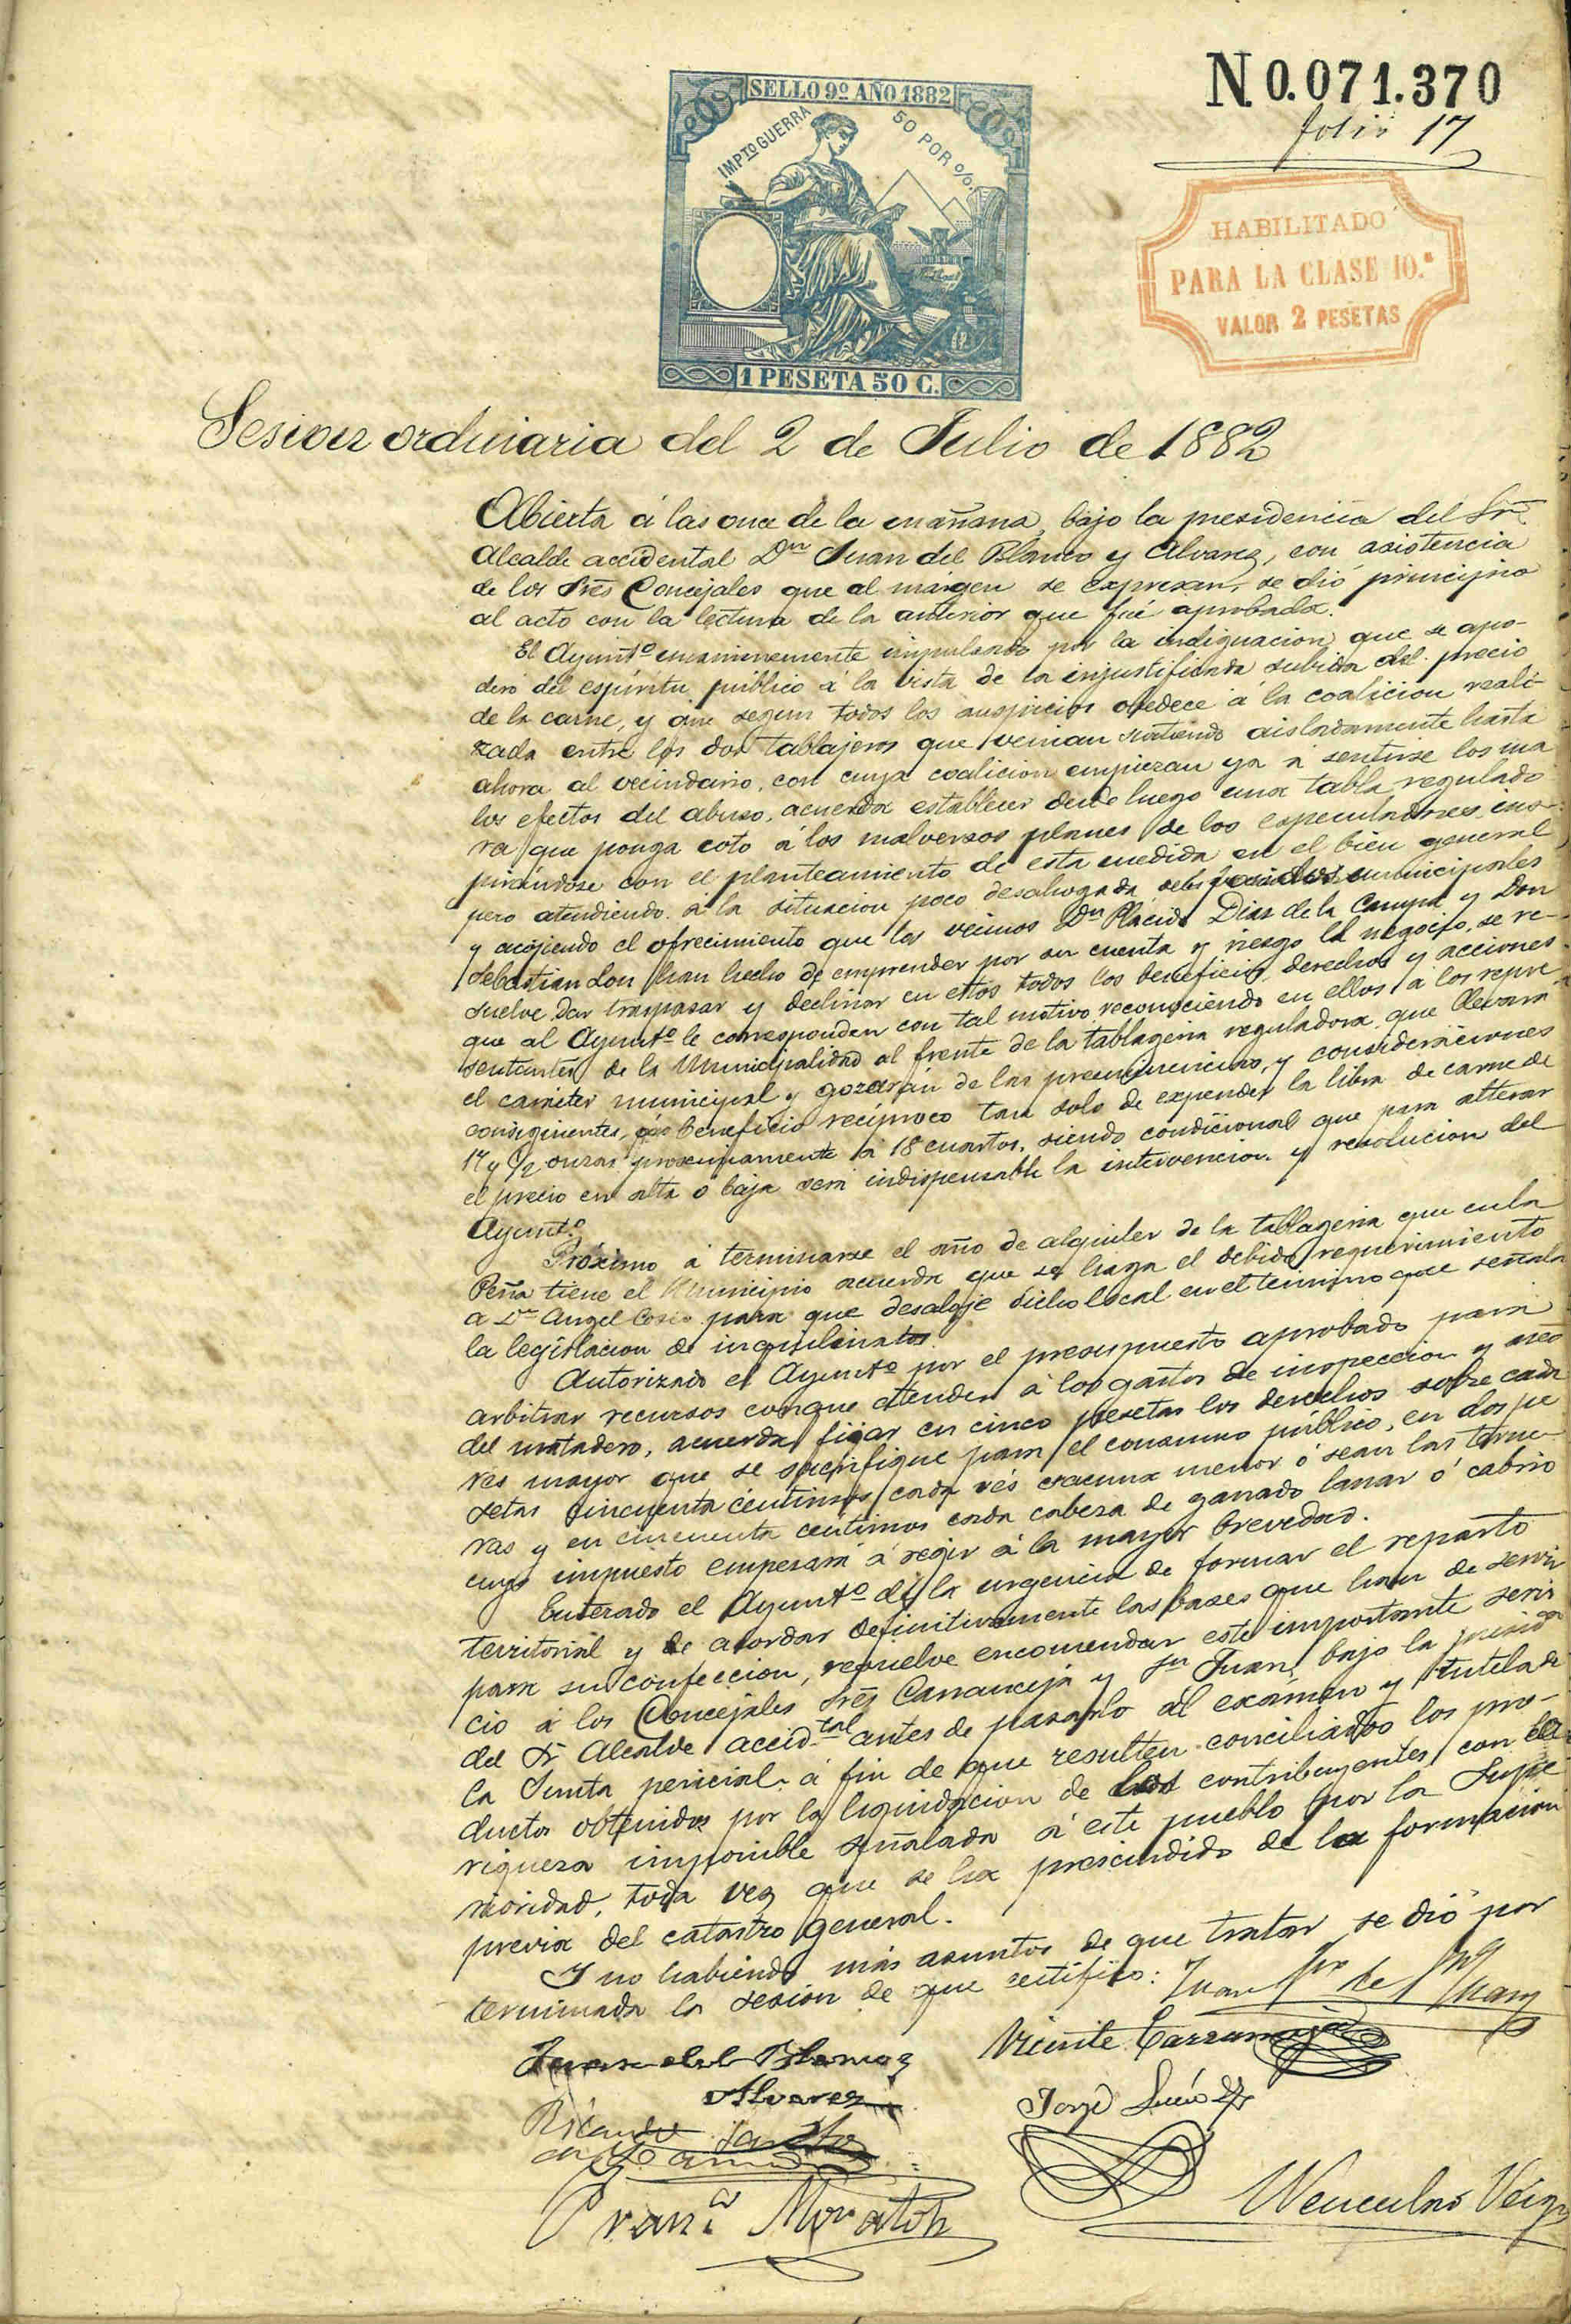 N 0.071.370
folio 17
SELLO 9º AÑO 1882
IMPTO GUERRA 50 POR %.
1 PESETA 50 C.
HABILITADO
PARA LA CLASE 10.ª
VALOR 2 PESETAS
Sesion ordinaria del 2 de Julio de 1882
Abierta á las once de la mañana, bajo la presidencia del Sr.
Alcalde accidental Dn Juan del Blanco y Alvarez, con asistencia
de los Sres Concejales que al márgen se expresan, se dió principio
al acto con la lectura de la anterior que fué aprobada.
El Ayuntº unanimemente impulsado por la indignacion que se apo-
deró del espíritu público á la vista de la injustificada subida del precio
de la carne, y que segun todos los auspicios obedece á la coalicion reali-
zada entre los dos tablajeros que venian surtiendo aisladamente hasta
ahora al vecindario, con cuya coalicion empiezan ya á sentirse los ma
los efectos del abuso, acuerda establecer desde luego una tabla regulado
ra que ponga coto á los malversos planes de los especuladores, ins-
pirándose con el planteamiento de esta medida en el bien general
pero atendiendo á la situacion poco desahogada de los fondos municipales
y acojiendo el ofrecimiento que los vecinos Dn Plácido Diaz de la Campa y Don
Sebastian Lon han hecho de emprender por su cuenta y riesgo el negocio, se re-
suelve dar traspasar y declinar en estos todos los beneficios, derechos y acciones
que al Ayuntº le corresponden con tal motivo, reconociendo en ellos á los repre
sentantes de la Municipalidad al frente de la tablageria reguladora, que llevará
el carácter municipal y gozarán de las preeminencias y consideraciones
consiguientes, beneficio recíproco tan solo de expender la libra de carne de
17 y 1/2 onzas proximamente á 18 cuartos, siendo condicional que para alterar
el precio en alta ó baja será indispensable la intervencion y resolucion del
Ayuntº.
Próximo á terminarse el año de alquiler de la tablageria que en la
Peña tiene el Municipio acuerda que se haga el debido requerimiento
a Dn Angel Cosio para que desaloje dicho local en el termino que señala
la legislacion de inquilinatos.
Autorizado el Ayuntº por el presupuesto aprobado para
arbitrar recursos conque atender á los gastos de inspeccion y aseo
del matadero, acuerda fijar en cinco pesetas los derechos sobre cada
res mayor que se sacrifique para el consumo público, en dos pe
setas cincuenta céntimos cada rés vacuna menor ó sean las terne-
ras y en cincuenta centimos cada cabeza de ganado lanar ó cabrio
cuyo impuesto empezará á regir á la mayor brevedad.
Enterado el Ayuntº de la urgencia de formar el reparto
territorial y de acordar definitivamente las bases que han de servir
para su confeccion, resuelve encomendar este importante servi
cio á los Concejales Sres Carranceja y Sn Juan, bajo la presid
del Sr Alcalde accidtal antes de pasarlo al exámen y tutela de
la Junta pericial, á fin de que resulten conciliados los pro-
ductos obtenidos por la liquidacion de los contribuyentes con la
riqueza imponible señalada á este pueblo por la Supe
rioridad, toda vez que se ha prescindido de la formacion
previa del catastro general.
Y no habiendo más asuntos de que tratar se dió por
terminada la sesion de que certifico:
Juan del Blanco y
Alvarez
Vicente Carranceja
Ricardo
Jorge
Franco Moratón
Wenceslao